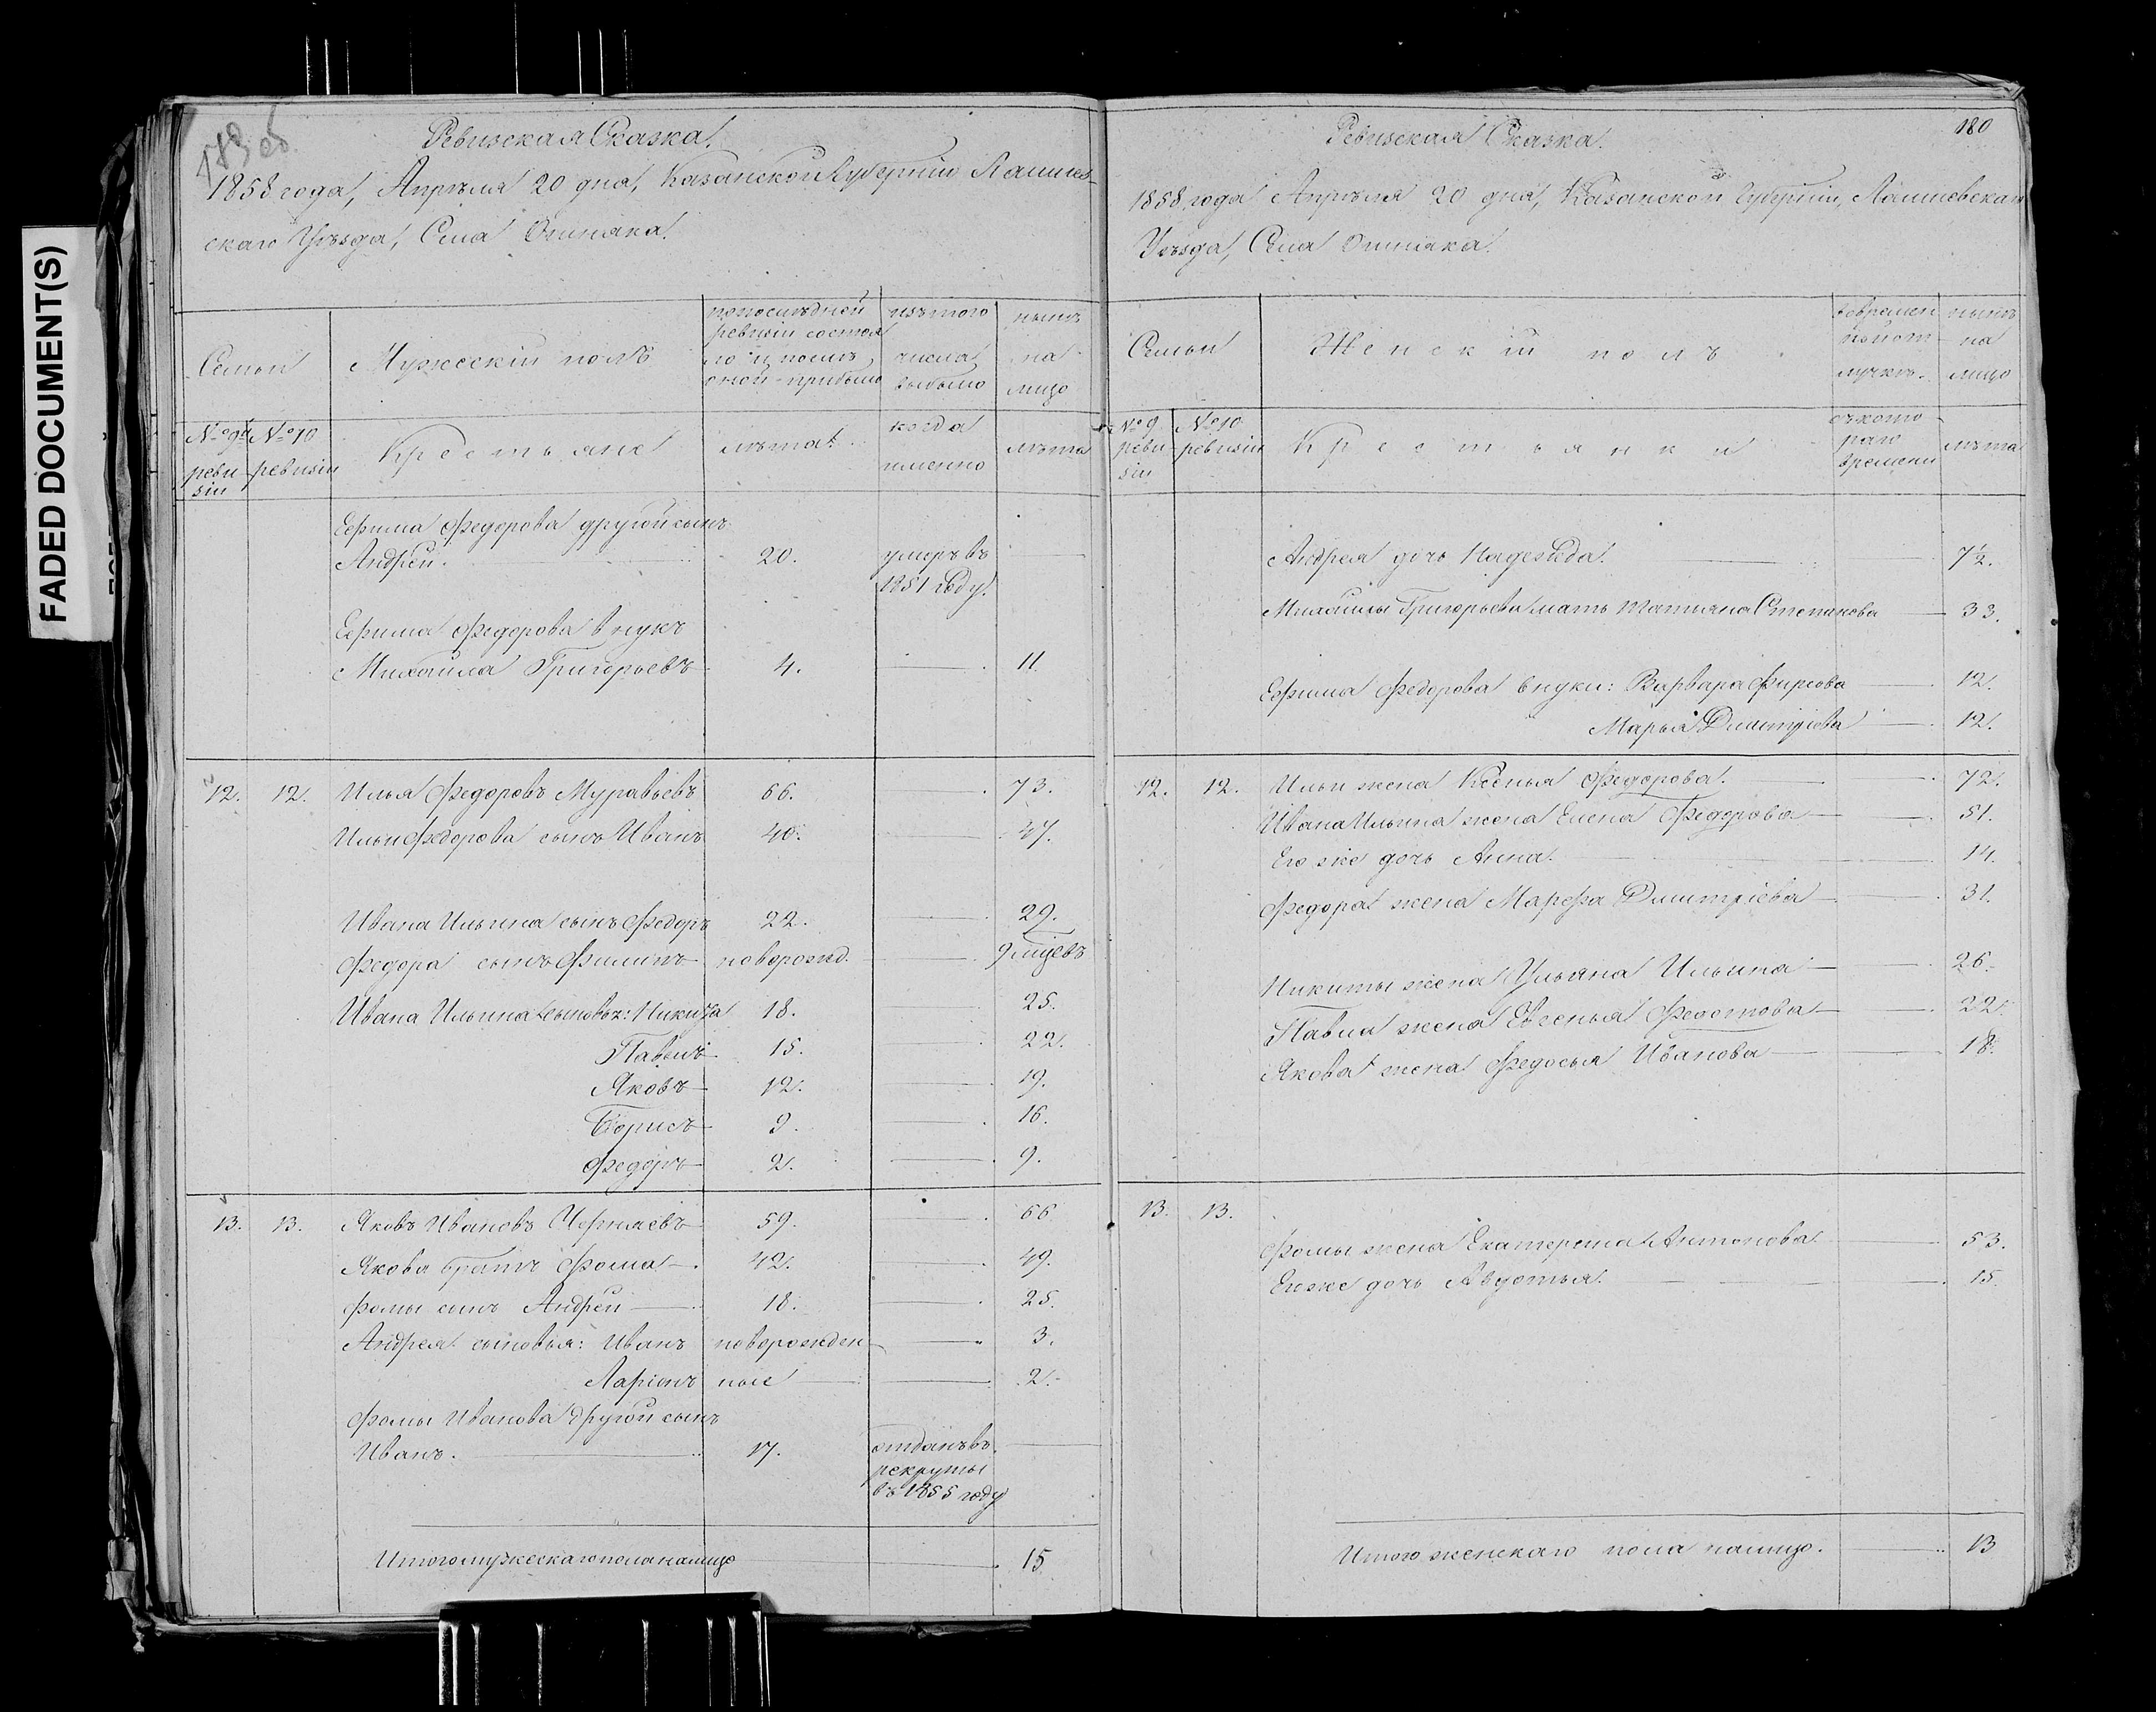 FADED DOCUMENT(S)
179 об.
Ревизская Сказка.
1858 года, Апрѣля 20 дня, Казанской Губерніи Лаишев-
скаго Уѣзда, Села
Семьи
Мужескій полъ
по послѣдней ревизіи состояло и послѣ оной прибыло
изъ того числа выбыло
нынѣ на лицо
№ 9й ревизіи
№ 10 ревизіи
Крестьяне
лѣта
когда именно
лѣта
Ефима Федорова другой сынъ
Андрей. 20. умеръ въ 1851 году.
Ефима Федорова внукъ
Михайла Григорьевъ 4. 11.
12. 12. Илья Федоровъ Муравьевъ 66. 73.
Ильи Федорова сынъ Иванъ 40. 47.
Ивана Ильина сынъ Федоръ 22. 29.
Федора сынъ Филипъ новорожд. 9 мѣцевъ
Ивана Ильина сыновья: Никита 18. 25.
Павелъ 15. 22.
Яковъ 12. 19.
Борисъ 9. 16.
Федоръ 2. 9.
13. 13. Яковъ Ивановъ Черняевъ 59. 66.
Якова братъ Фома 42. 49.
Фомы сынъ Андрей 18. 25.
Андрея сыновья: Иванъ новорожден- 3.
Ларіонъ ные 2.
Фомы Иванова другой сынъ
Иванъ. 17. отданъ въ рекруты въ 1855 году
Итого мужескаго пола на лицо 15.
180
Ревизская Сказка.
1858 года Апрѣля 20 дня, Казанской Губерніи, Лаишевскаго
Уѣзда, Села
Семьи
Женскій полъ
во временной отлучкѣ.
нынѣ на лицо
№ 9 ревизіи
№ 10 ревизіи
Крестьянки
съ котораго времени
лѣта
Андрея дочь Надежда. 7½.
Михайлы Григорьева мать Татьяна Степанова 33.
Ефима Федорова внуки: Варвара Фирсова 12.
Марья Дмитріева 12.
12. 12. Ильи жена Ксенья Федорова. 72.
Ивана Ильина жена Елена Федорова 51.
Его же дочь Анна. 14.
Федора жена Марфа Дмитріева 31.
Никиты жена Ульяна Ильина 26.
Павла жена Евгенья Федотова 22.
Якова жена Федосья Иванова 18.
13. 13.
Фомы жена Екатерина Антонова 53.
Его же дочь Авдотья. 15.
Итого женскаго пола на лицо. 13